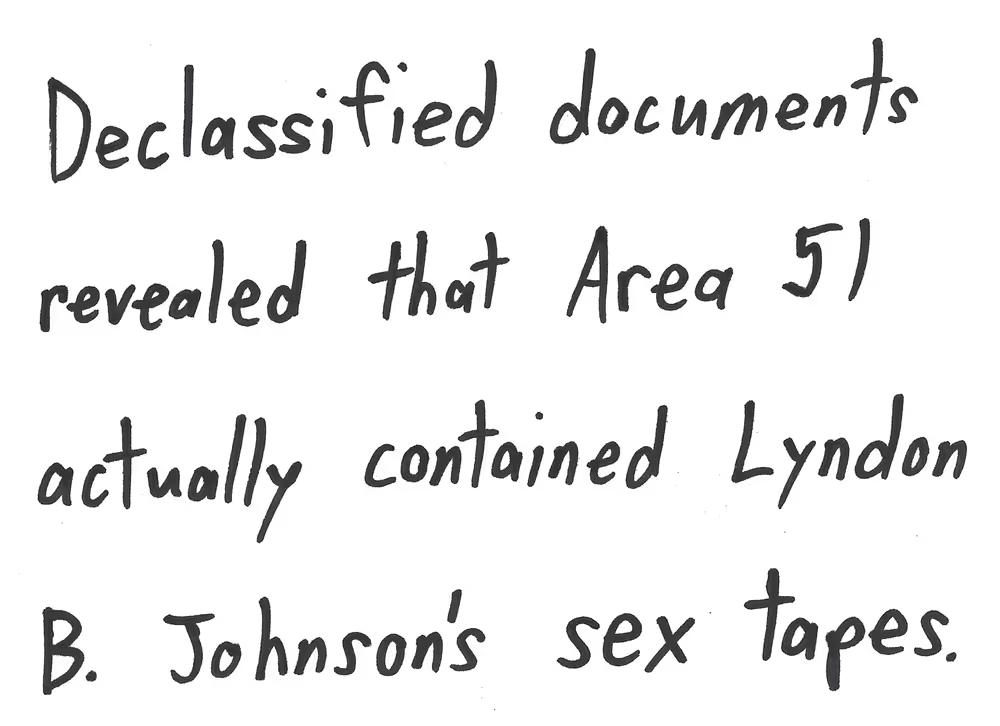 Declassified documents
revealed that Area 51
actually contained Lyndon
B. Johnson's sex tapes.